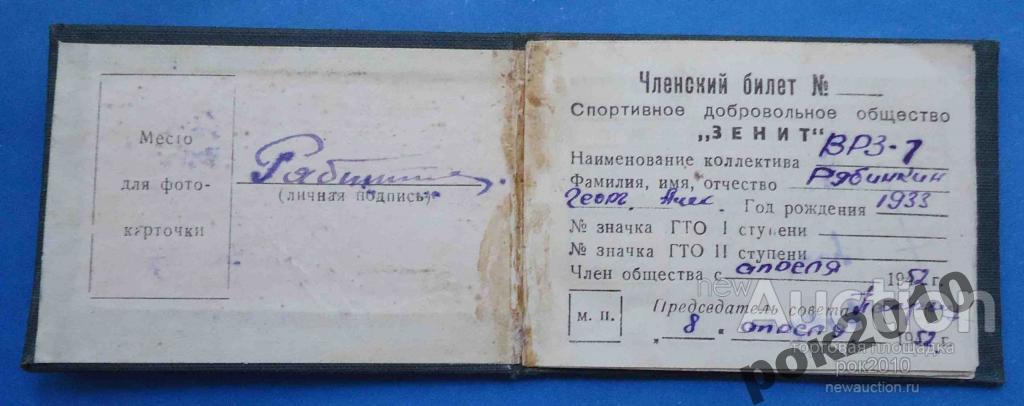 Место
для фото-
карточки
Рябинкин
(личная подпись)
Членский билет №
Спортивное добровольное общество
„ЗЕНИТ"
Наименование коллектива ВРЗ-1
Фамилия, имя, отчество Рябинкин
Георг. Алек. Год рождения 1933
№ значка ГТО I ступени
№ значка ГТО II ступени
Член общества с апреля 1952 г.
м. п.
Председатель совета
„8. апреля 1952 г.
newAuction
торговая площадка
рок2010
newauction.ru
рок2010